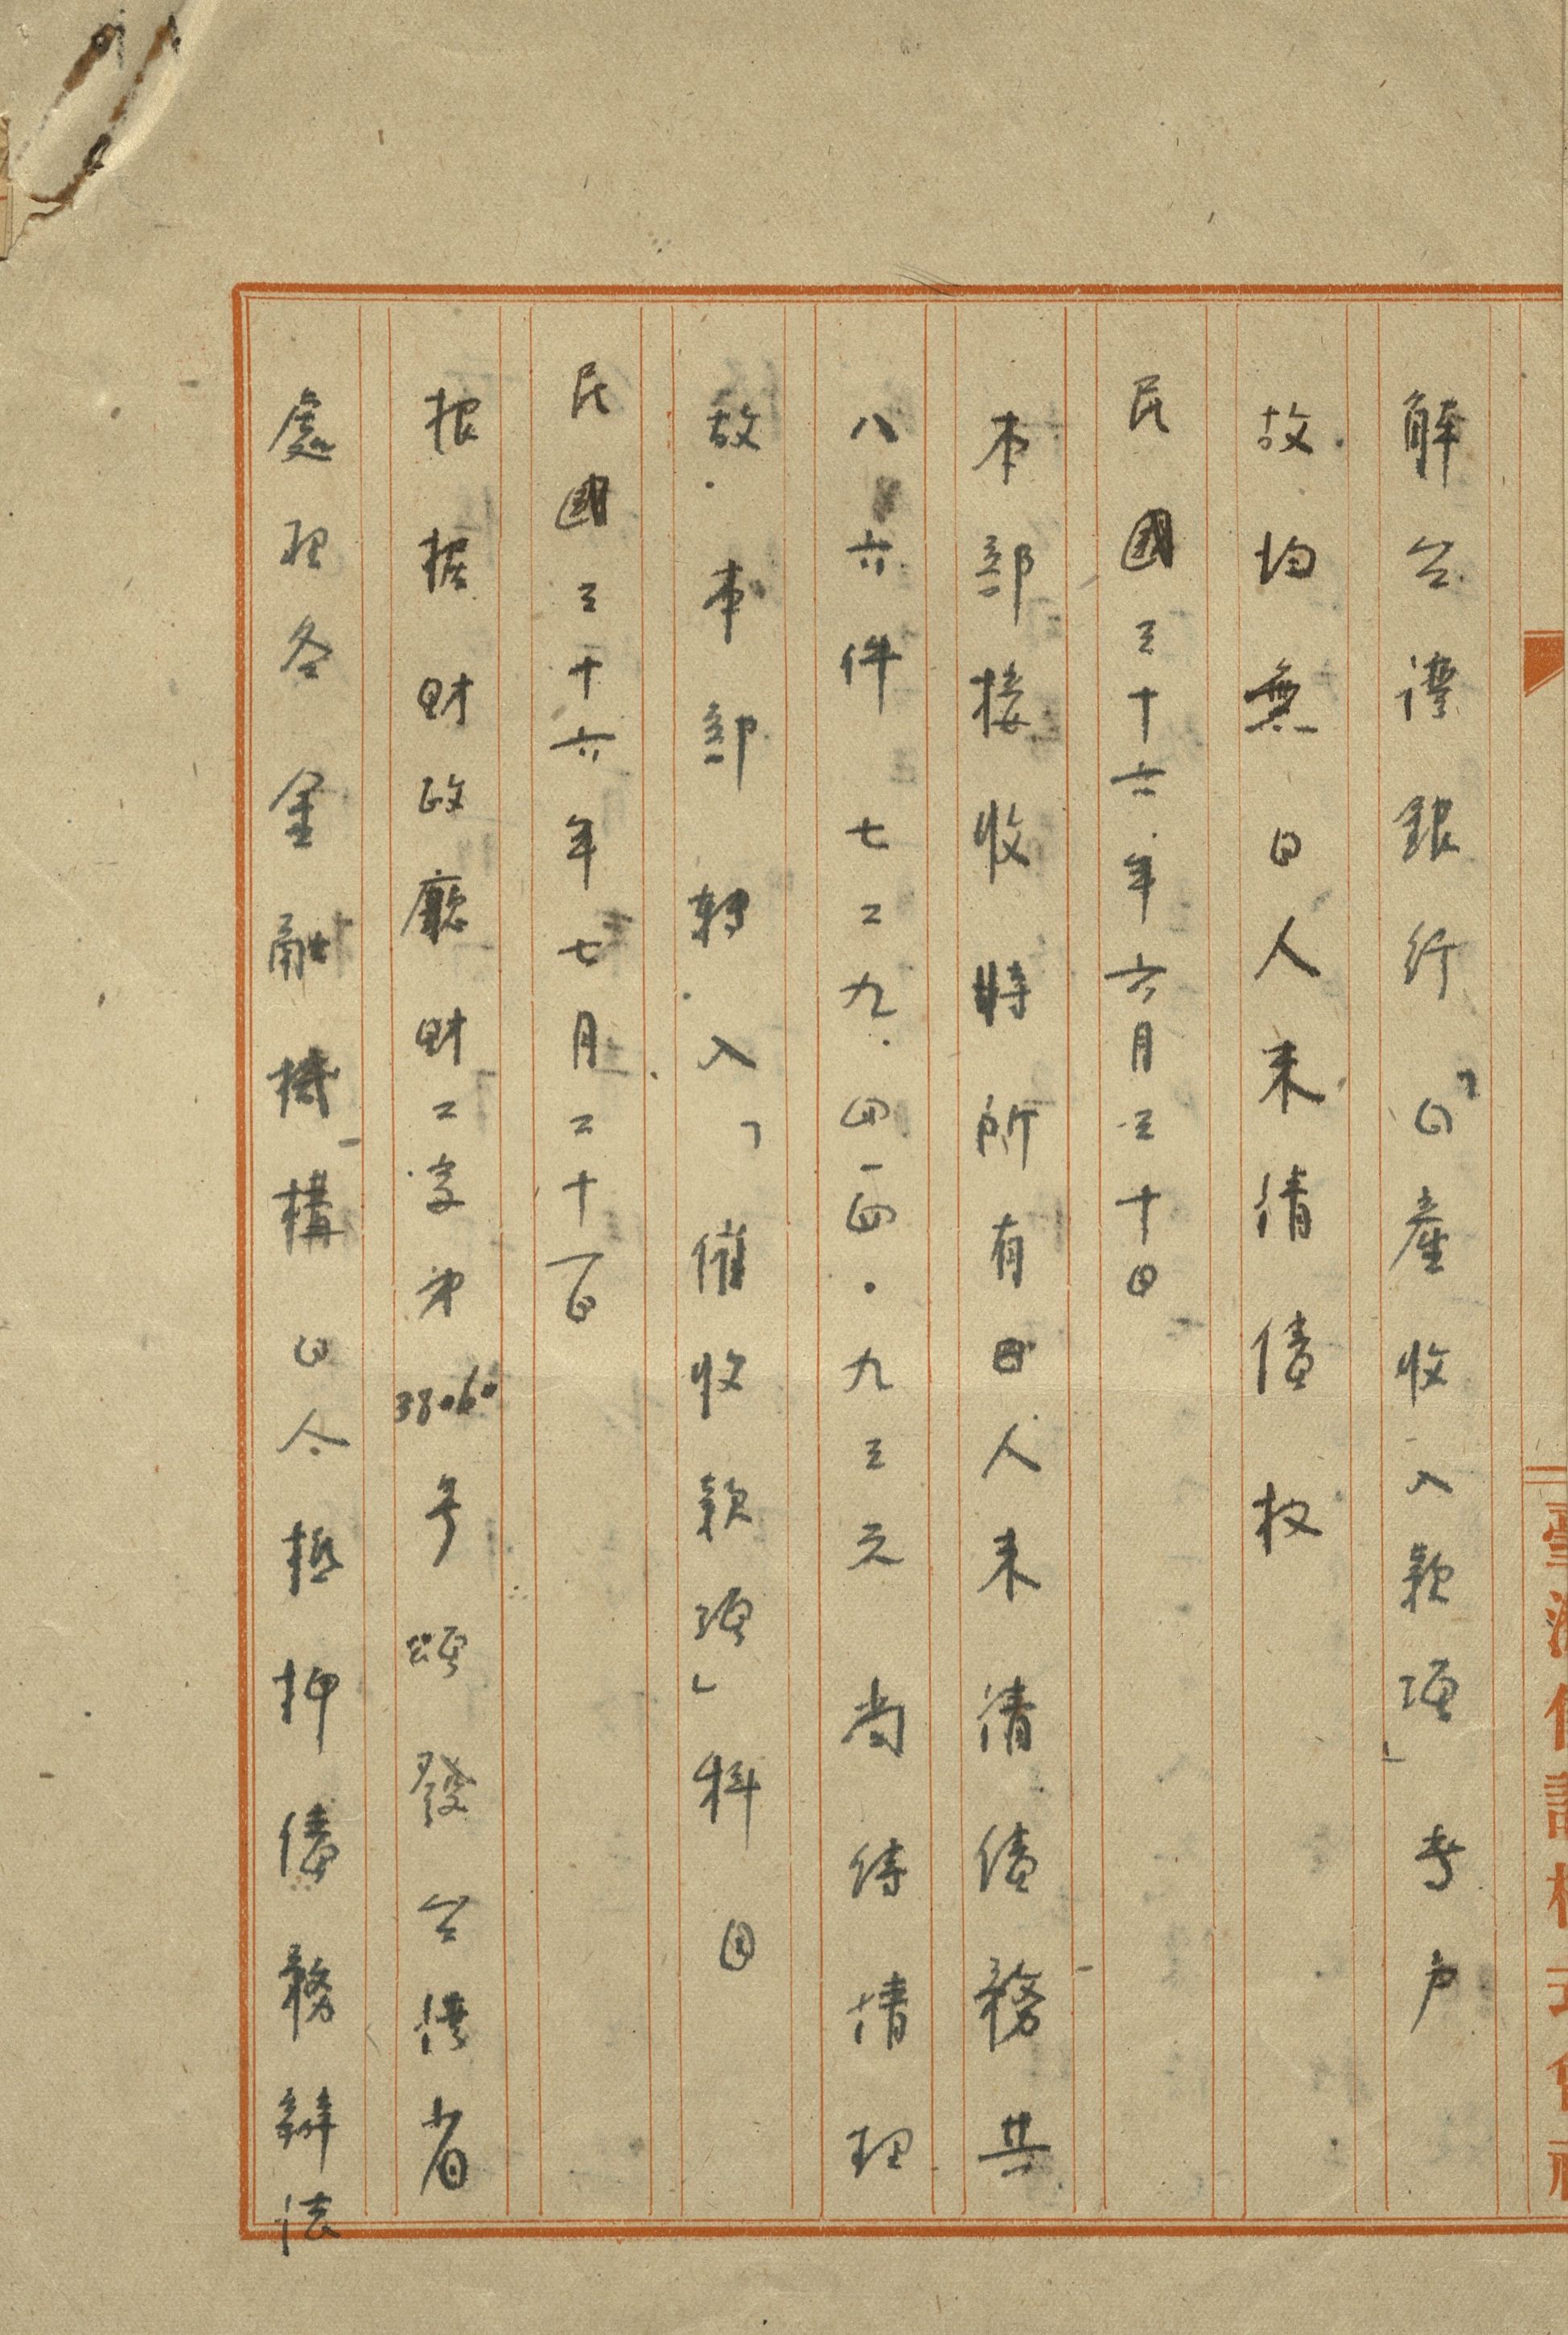 臺灣信託株式會社
解台湾銀行「日產收入款項」專户
故均無日人未清債权
民國三十六年六月三十日
本部接收時所有日人未清債務共
八六件七二九.四一四.九三元尚待清理
故本部轉入「催收款項」科目
民國三十六年七月二十一日
根据財政廳財二字第38060号頒發台湾省
處理各金融機構日人抵押債務辦法